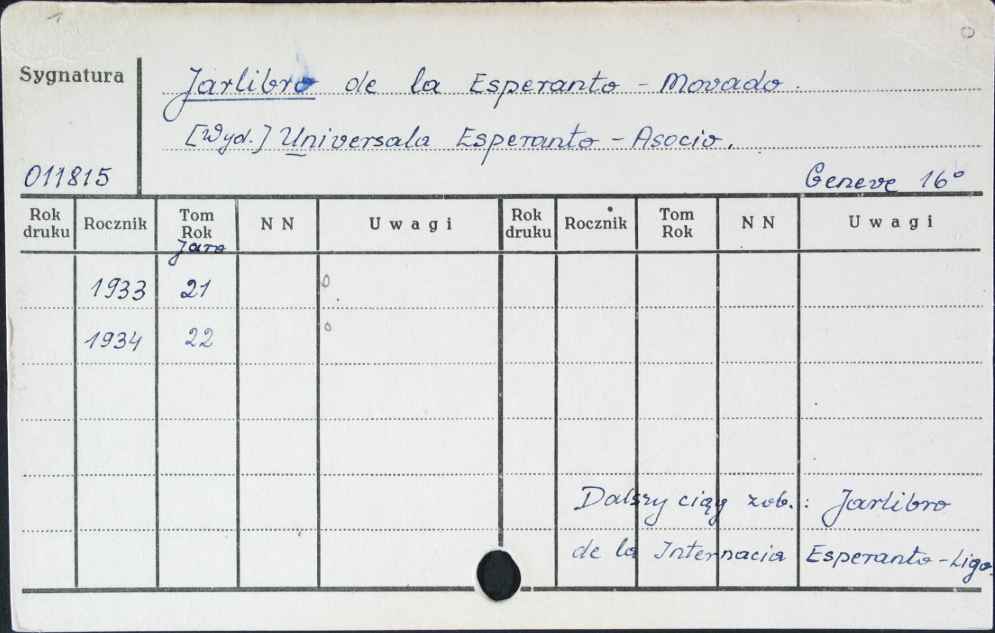 Sygnatura
Jarlibro de la Esperanto - Movado.
[Wyd.] Universala Esperanto - Asocio.
011815
Geneve 16°
Rok druku Rocznik Tom Rok NN Uwagi Rok druku Rocznik Tom Rok NN Uwagi
Jaro
1933 21 0
1934 22 0
Dalszy ciąg zob.: Jarlibro
de la Internacia Esperanto-Ligo.